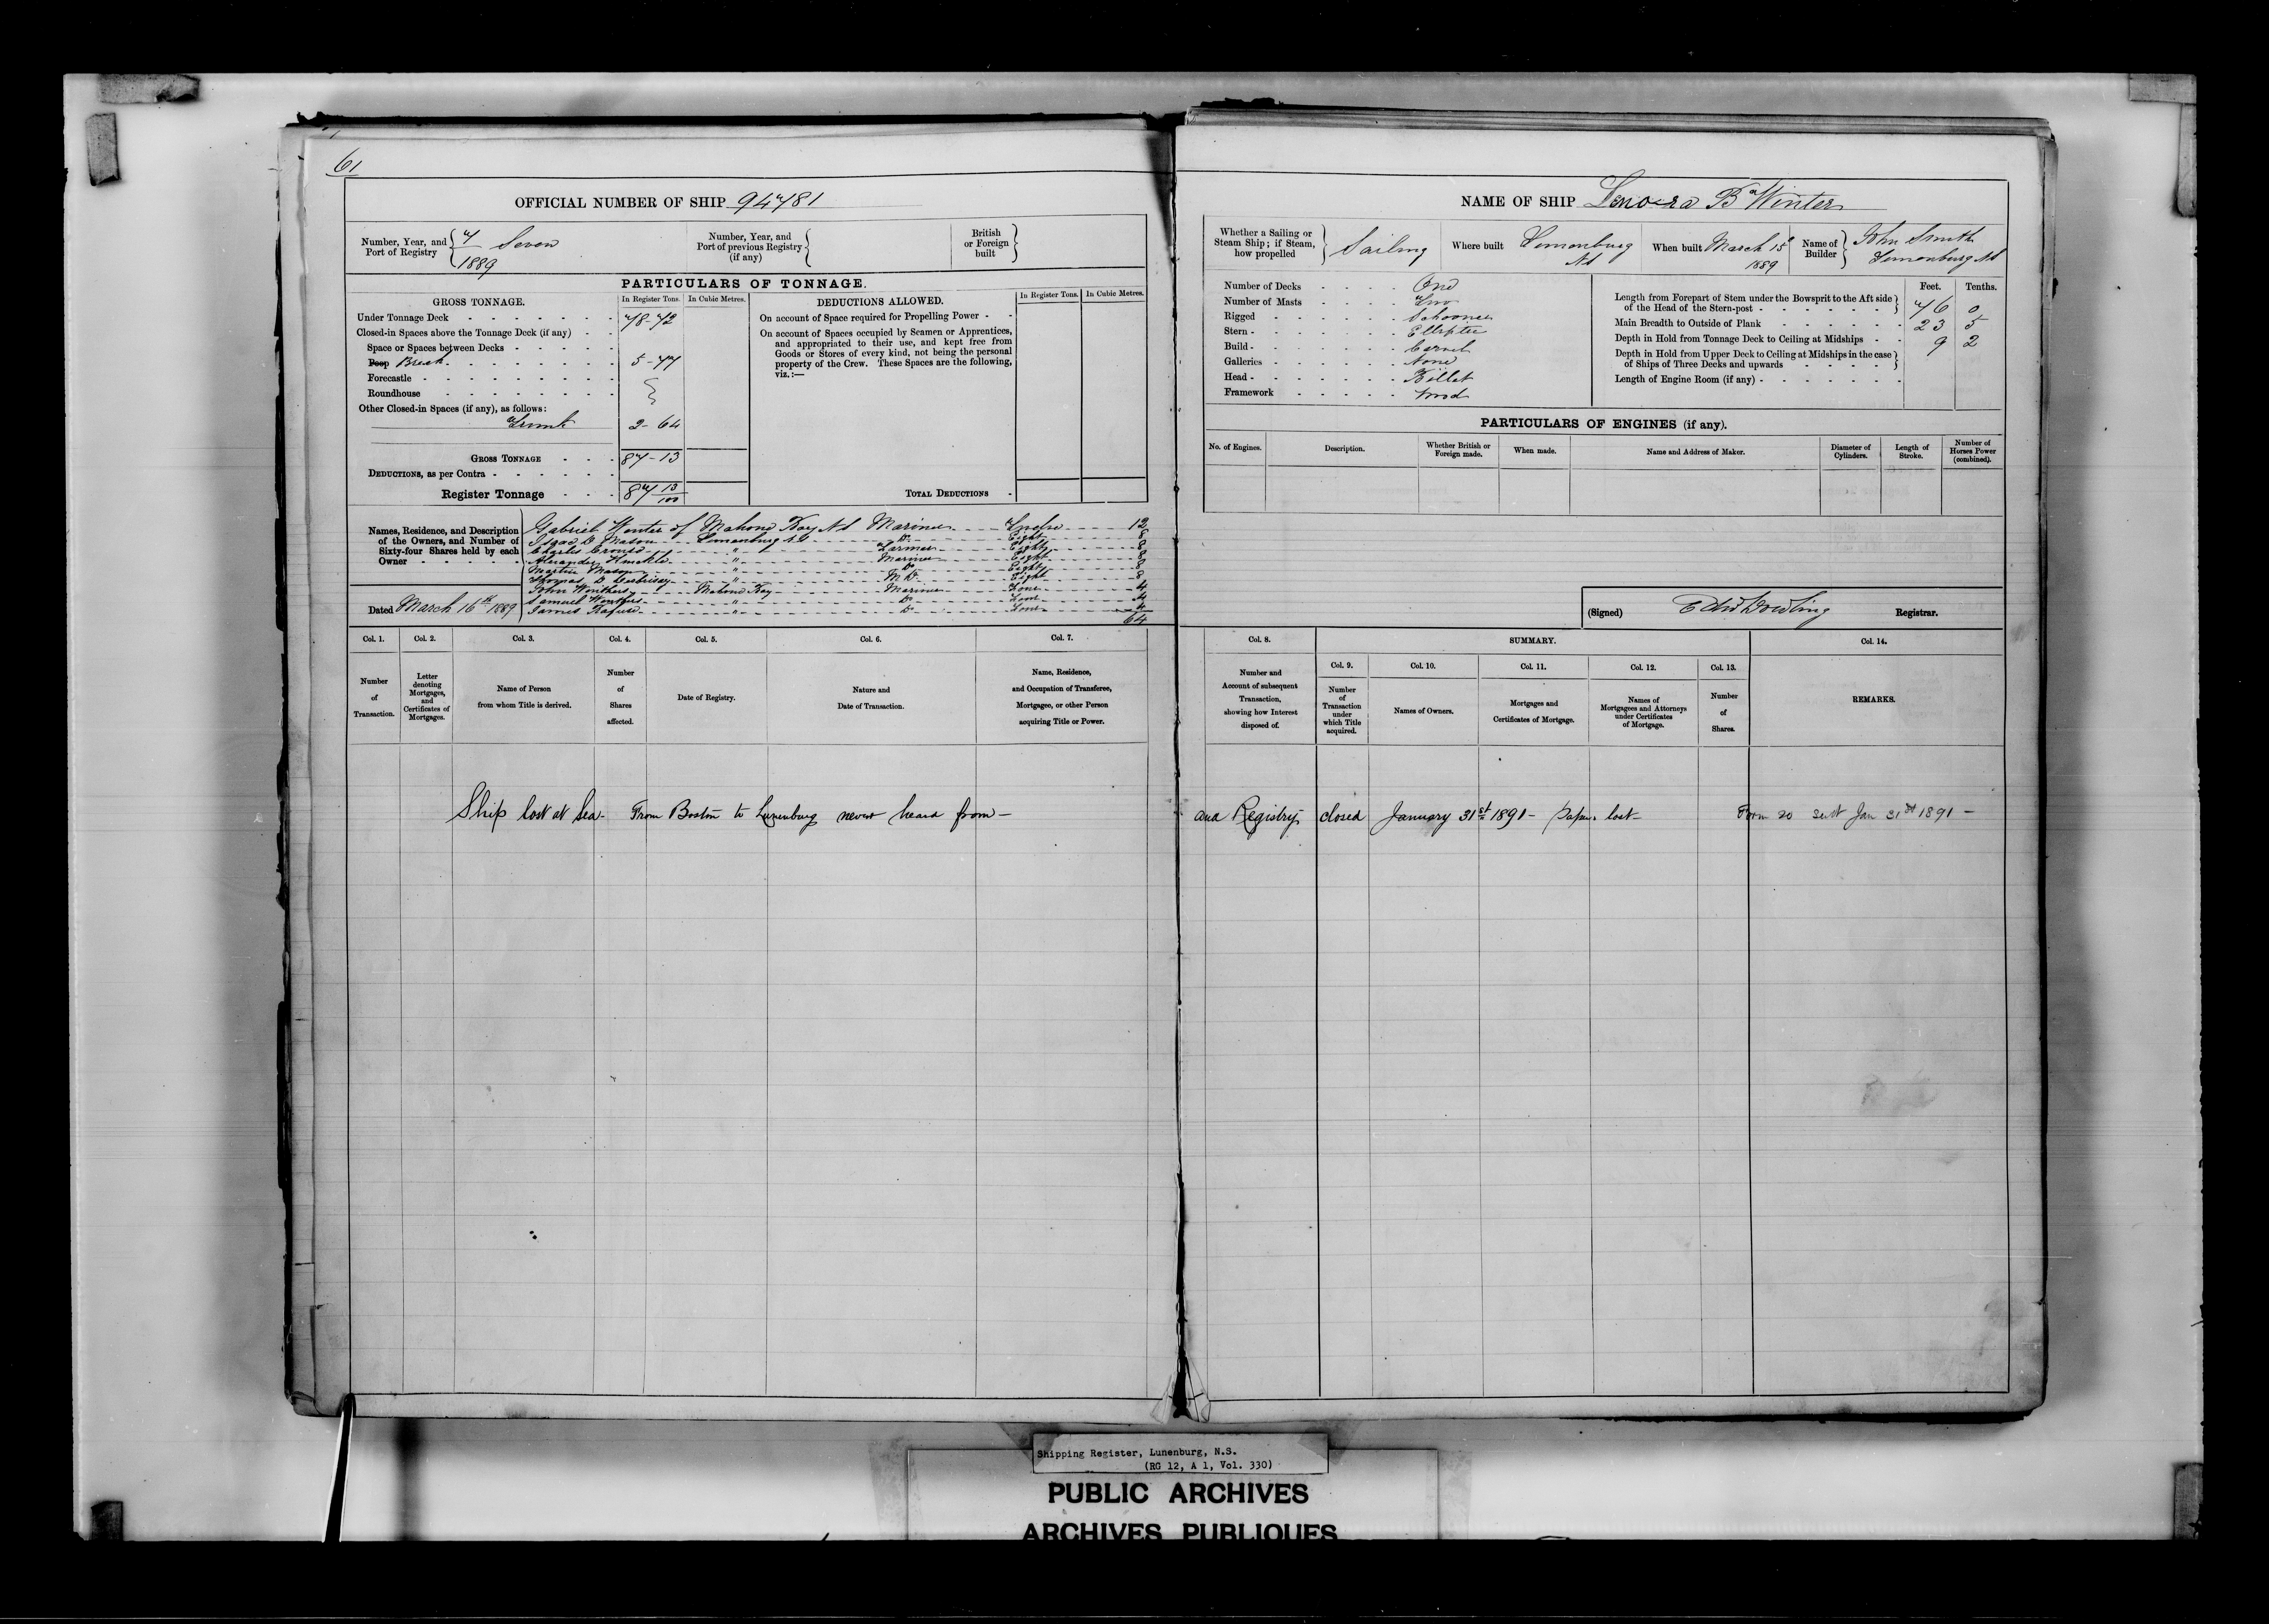 61
OFFICIAL NUMBER OF SHIP 94781
Number, Year, and Port of Registry 7 Seven 1889
Number, Year, and Port of previous Registry (if any)
British or Foreign built
PARTICULARS OF TONNAGE.
GROSS TONNAGE. In Register Tons. In Cubic Metres.
Under Tonnage Deck 78-72
Closed-in Spaces above the Tonnage Deck (if any)
Space or Spaces between Decks
Poop Break 5-77
Forecastle
Roundhouse
Other Closed-in Spaces (if any), as follows:
Trunk 2-64
GROSS TONNAGE 87-13
DEDUCTIONS, as per Contra
Register Tonnage 87 13/100
DEDUCTIONS ALLOWED. In Register Tons. In Cubic Metres.
On account of Space required for Propelling Power
On account of Spaces occupied by Seamen or Apprentices,
and appropriated to their use, and kept free from
Goods or Stores of every kind, not being the personal
property of the Crew. These Spaces are the following,
viz.:—
TOTAL DEDUCTIONS
Names, Residence, and Description of the Owners, and Number of Sixty-four Shares held by each Owner
Gabriel Winter of Mahone Bay NS Mariner Twelve 12
Isaac Mason Lunenburg NS Do Eight 8
Charles Crouse " Farmer Eight 8
Alexander Knickle " Mariner Eight 8
Martin Mason " Do Eight 8
Thomas " MD Eight 8
John Winters Mahone Bay Mariner Four 4
Samuel Winters " Do Four 4
James Rafuse " Do Four 4
64
Dated March 16th 1889
Col. 1. Col. 2. Col. 3. Col. 4. Col. 5. Col. 6. Col. 7.
Number of Transaction.
Letter denoting Mortgages, and Certificates of Mortgages.
Name of Person from whom Title is derived.
Number of Shares affected.
Date of Registry.
Nature and Date of Transaction.
Name, Residence, and Occupation of Transferee, Mortgagee, or other Person acquiring Title or Power.
Ship lost at Sea - From Boston to Lunenburg never heard from —
NAME OF SHIP Lenora B Winter
Whether a Sailing or Steam Ship; if Steam, how propelled Sailing
Where built Lunenburg NS
When built March 15 1889
Name of Builder John Smith Lunenburg NS
Number of Decks One
Number of Masts Two
Rigged Schooner
Stern Elliptic
Build Carvel
Galleries None
Head Billet
Framework Wood
Feet. Tenths.
Length from Forepart of Stem under the Bowsprit to the Aft side of the Head of the Stern-post 76 0
Main Breadth to Outside of Plank 23 5
Depth in Hold from Tonnage Deck to Ceiling at Midships 9 2
Depth in Hold from Upper Deck to Ceiling at Midships in the case of Ships of Three Decks and upwards
Length of Engine Room (if any)
PARTICULARS OF ENGINES (if any).
No. of Engines.
Description.
Whether British or Foreign made.
When made.
Name and Address of Maker.
Diameter of Cylinders.
Length of Stroke.
Number of Horses Power (combined).
(Signed) Edw Dowling Registrar.
Col. 8. SUMMARY. Col. 14.
Col. 9. Col. 10. Col. 11. Col. 12. Col. 13.
Number and Account of subsequent Transaction, showing how Interest disposed of.
Number of Transaction under which Title acquired.
Names of Owners.
Mortgages and Certificates of Mortgage.
Names of Mortgagees and Attorneys under Certificates of Mortgage.
Number of Shares.
REMARKS.
and Registry closed January 31st 1891 - Papers lost - Form 20 sent Jan 31st 1891 —
Shipping Register, Lunenburg, N.S.
(RG 12, A 1, Vol. 330)
PUBLIC ARCHIVES
ARCHIVES PUBLIQUES